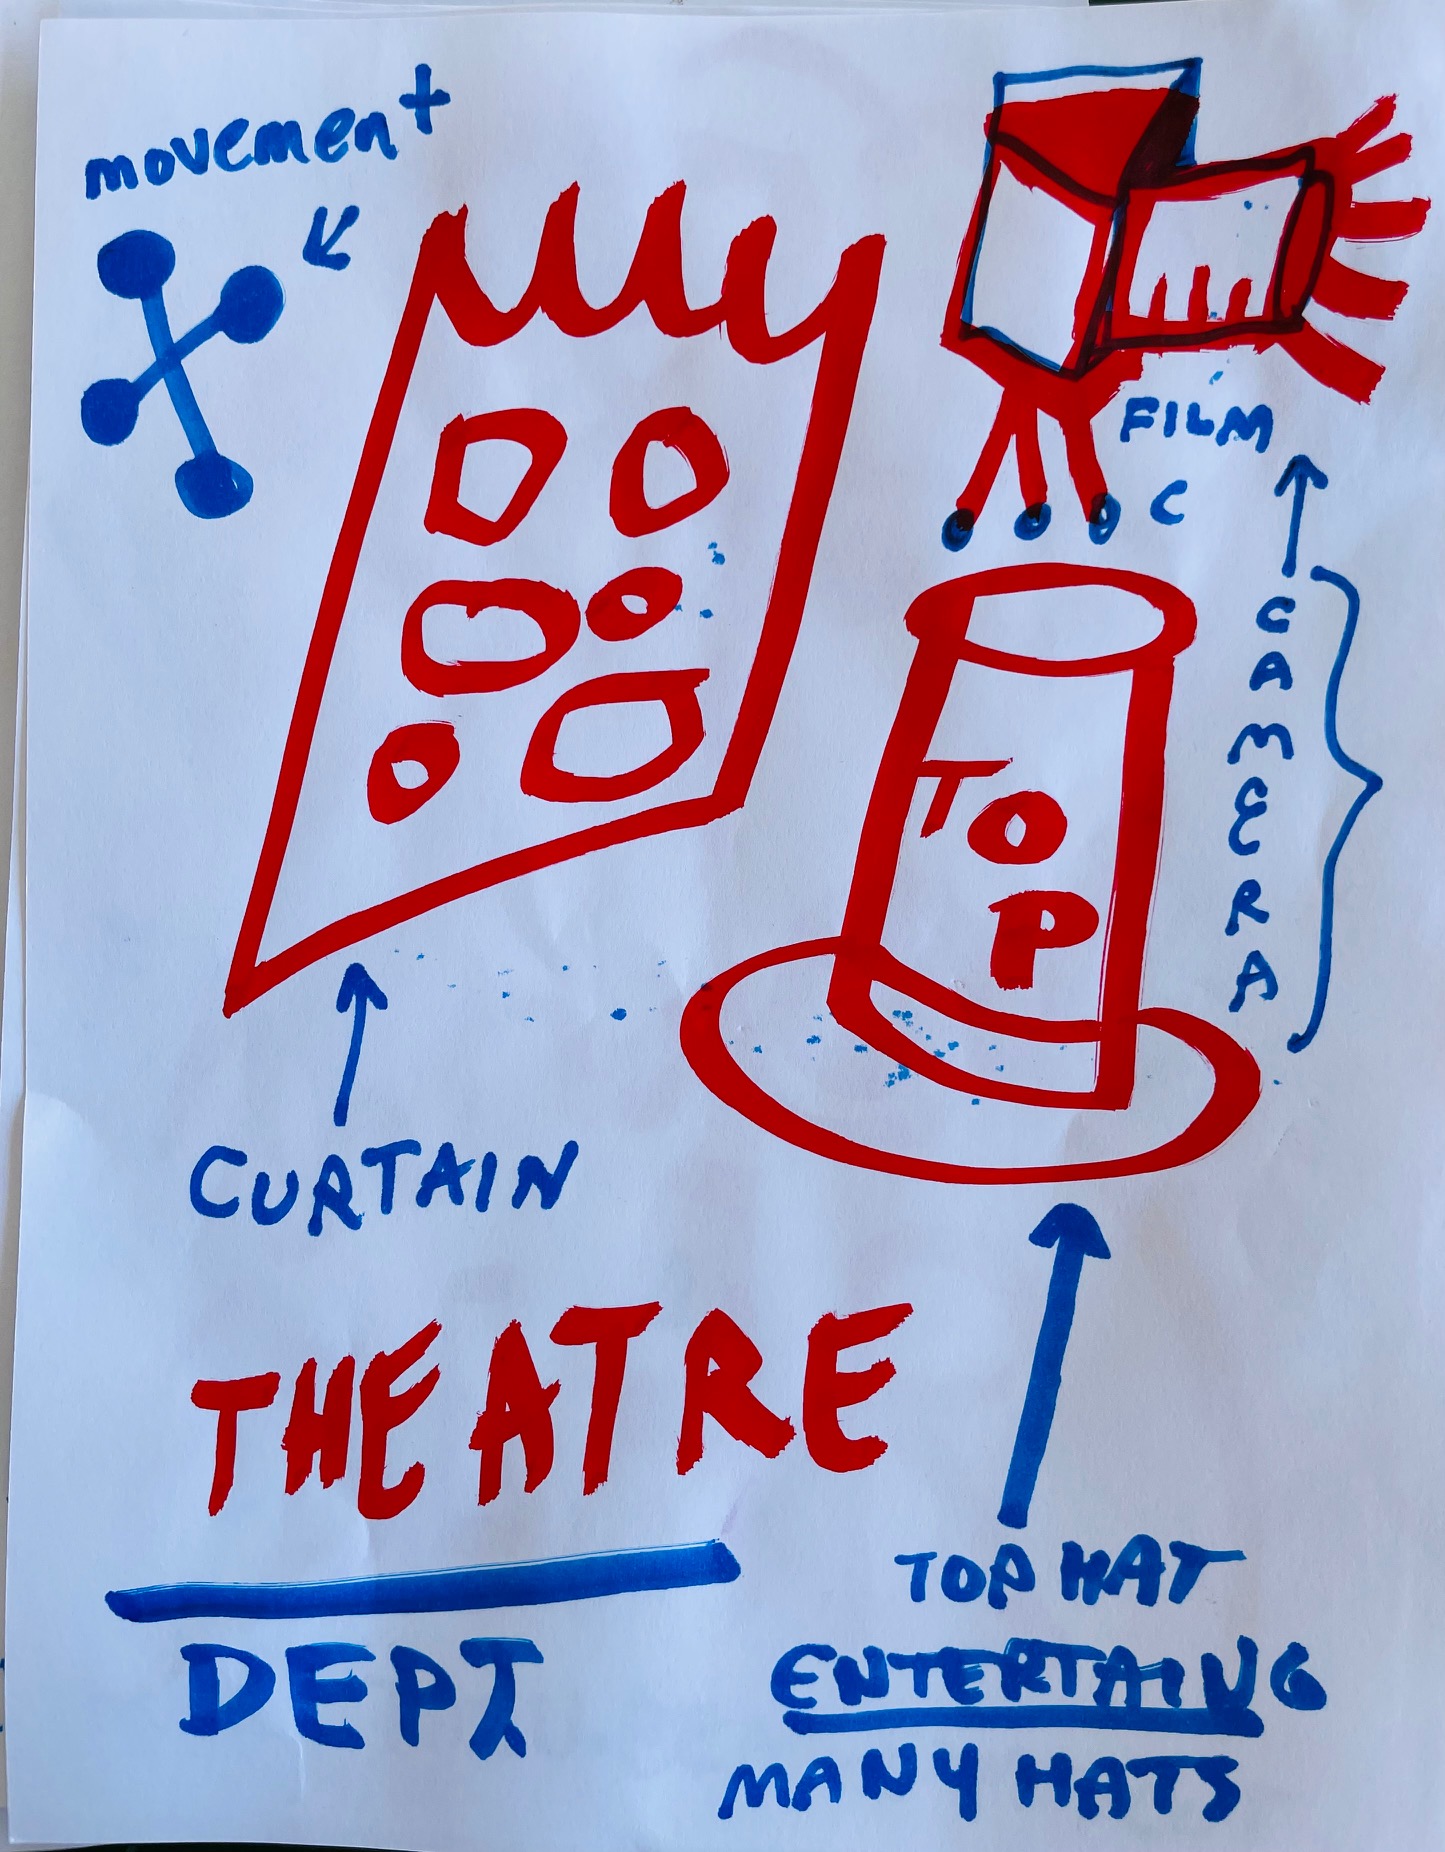 movement
FILM
C
CAMERA
TO
P
CURTAIN
THEATRE
DEPT
TOP HAT
ENTERTAING
MANY HATS